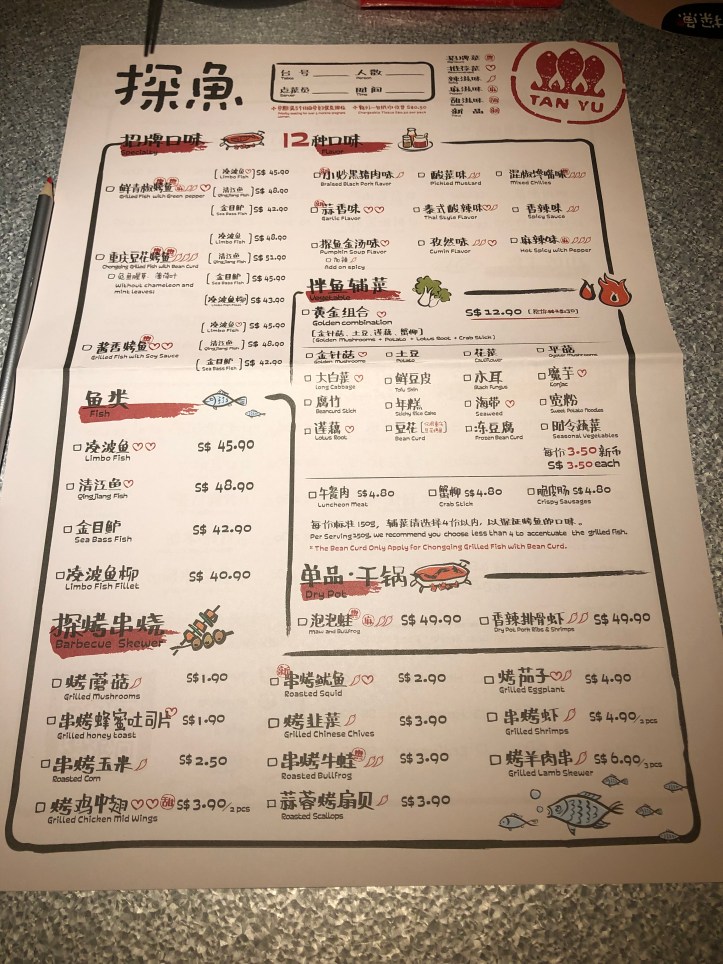 探魚
台号 人数
Table Person
点菜员 时间
Server Time
招牌菜
推荐菜
辣滋味
麻滋味
甜滋味
新品
TAN YU
招牌口味
Specialty
鲜青椒烤鱼
Grilled Fish with Green pepper
凌波鱼 S$ 45.90
Limbo Fish
清江鱼 S$ 48.90
QingJiang Fish
金目鲈 S$ 42.90
Sea Bass Fish
重庆豆花烤鱼
Chongqing Grilled Fish with Bean Curd
Without chameleon and
mint leaves)
凌波鱼 S$ 48.90
Limbo Fish
清江鱼 S$ 51.90
QingJiang Fish
金目鲈 S$ 45.90
Sea Bass Fish
凌波鱼柳 S$ 43.90
Limbo Fish Fillet
酱香烤鱼
Grilled Fish with Soy Sauce
凌波鱼 S$ 45.90
Limbo Fish
清江鱼 S$ 48.90
QingJiang Fish
金目鲈 S$ 42.90
Sea Bass Fish
12种口味
Flavor
小炒黑猪肉味 酸菜味 混椒馋嘴味
Braised Black Pork flavor Pickled Mustard Mixed Chilies
蒜香味 泰式酸辣味 香辣味
Garlic Flavor Thai Style Flavor Spicy Sauce
探鱼金汤味 孜然味 麻辣味
Pumpkin Soup Flavor Cumin Flavor Hot Spicy with Pepper
加辣
Add on spicy
拌鱼辅菜
Vegetable
黄金组合 S$ 12.90
Golden combination
[金针菇、土豆、莲藕、蟹柳]
(Golden Mushrooms + Potato + Lotus Root + Crab Stick)
金针菇 土豆 花菜 平菇
Golden Mushrooms Potato Cauliflower Oyster Mushrooms
大白菜 鲜豆皮 木耳 魔芋
Long Cabbage Tofu Skin Black Fungus Konjac
腐竹 年糕 海带 宽粉
Beancurd Stick Sticky Rice Cake Seaweed Sweet Potato Noodles
莲藕 豆花 冻豆腐 时令蔬菜
Lotus Root Bean Curd Frozen Bean Curd Seasonal Vegetables
每份 3.50 新币
S$ 3.50 each
午餐肉 S$ 4.80 蟹柳 S$ 4.80 脆皮肠 S$ 4.80
Luncheon Meat Crab Stick Crispy Sausages
每份标准 150g, 辅菜请选择4份以内, 以保证烤鱼的口味。
Per Serving 150g, we recommend you choose less than 4 to accentuate the grilled fish.
* The Bean Curd Only Apply for Chongqing Grilled Fish with Bean Curd.
鱼类
Fish
凌波鱼 S$ 45.90
Limbo Fish
清江鱼 S$ 48.90
QingJiang Fish
金目鲈 S$ 42.90
Sea Bass Fish
凌波鱼柳 S$ 40.90
Limbo Fish Fillet
单品·干锅
Dry Pot
泡泡蛙 S$ 49.90 香辣排骨虾 S$ 49.90
Maw and Bullfrog Dry Pot Pork Ribs & Shrimps
探烤串烧
Barbecue Skewer
烤蘑菇 S$ 1.90 串烤鱿鱼 S$ 2.90 烤茄子 S$ 4.90
Grilled Mushrooms Roasted Squid Grilled Eggplant
串烤蜂蜜吐司片 S$ 1.90 烤韭菜 S$ 3.90 串烤虾 S$ 4.90/2 pcs
Grilled honey toast Grilled Chinese Chives Grilled Shrimps
串烤玉米 S$ 2.50 串烤牛蛙 S$ 3.90 烤羊肉串 S$ 6.90/3 pcs
Roasted Corn Roasted Bullfrog Grilled Lamb Skewer
烤鸡中翅 S$ 3.90/2 pcs 蒜蓉烤扇贝 S$ 3.90
Grilled Chicken Mid Wings Roasted Scallops